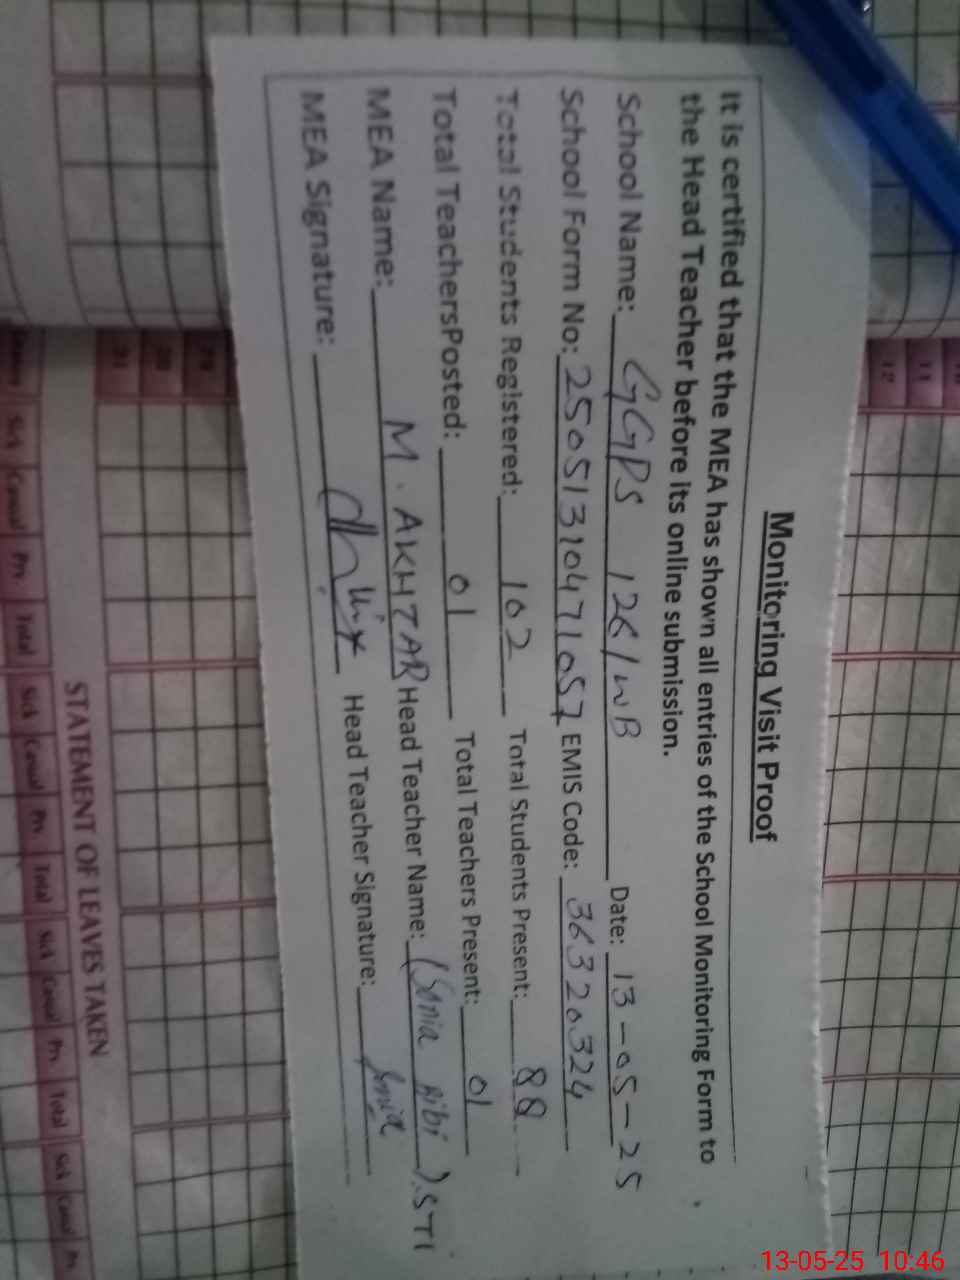 Monitoring Visit Proof
It is certified that the MEA has shown all entries of the School Monitoring Form to
the Head Teacher before its online submission.
School Name: GGPS 126/WB Date: 13-05-25
School Form No: 25051310471057 EMIS Code: 36320324
Total Students Registered: 102 Total Students Present: 88
Total TeachersPosted: 01 Total Teachers Present: 01
MEA Name: M. AKHTAR Head Teacher Name: (Sonia Bibi) STI
MEA Signature: Head Teacher Signature: Sonia
STATEMENT OF LEAVES TAKEN
Sick Casual Prv. Total Sick Casual Prv. Total Sick Casual Prv. Total Sick Casual Prv.
11
12
13-05-25 10:46